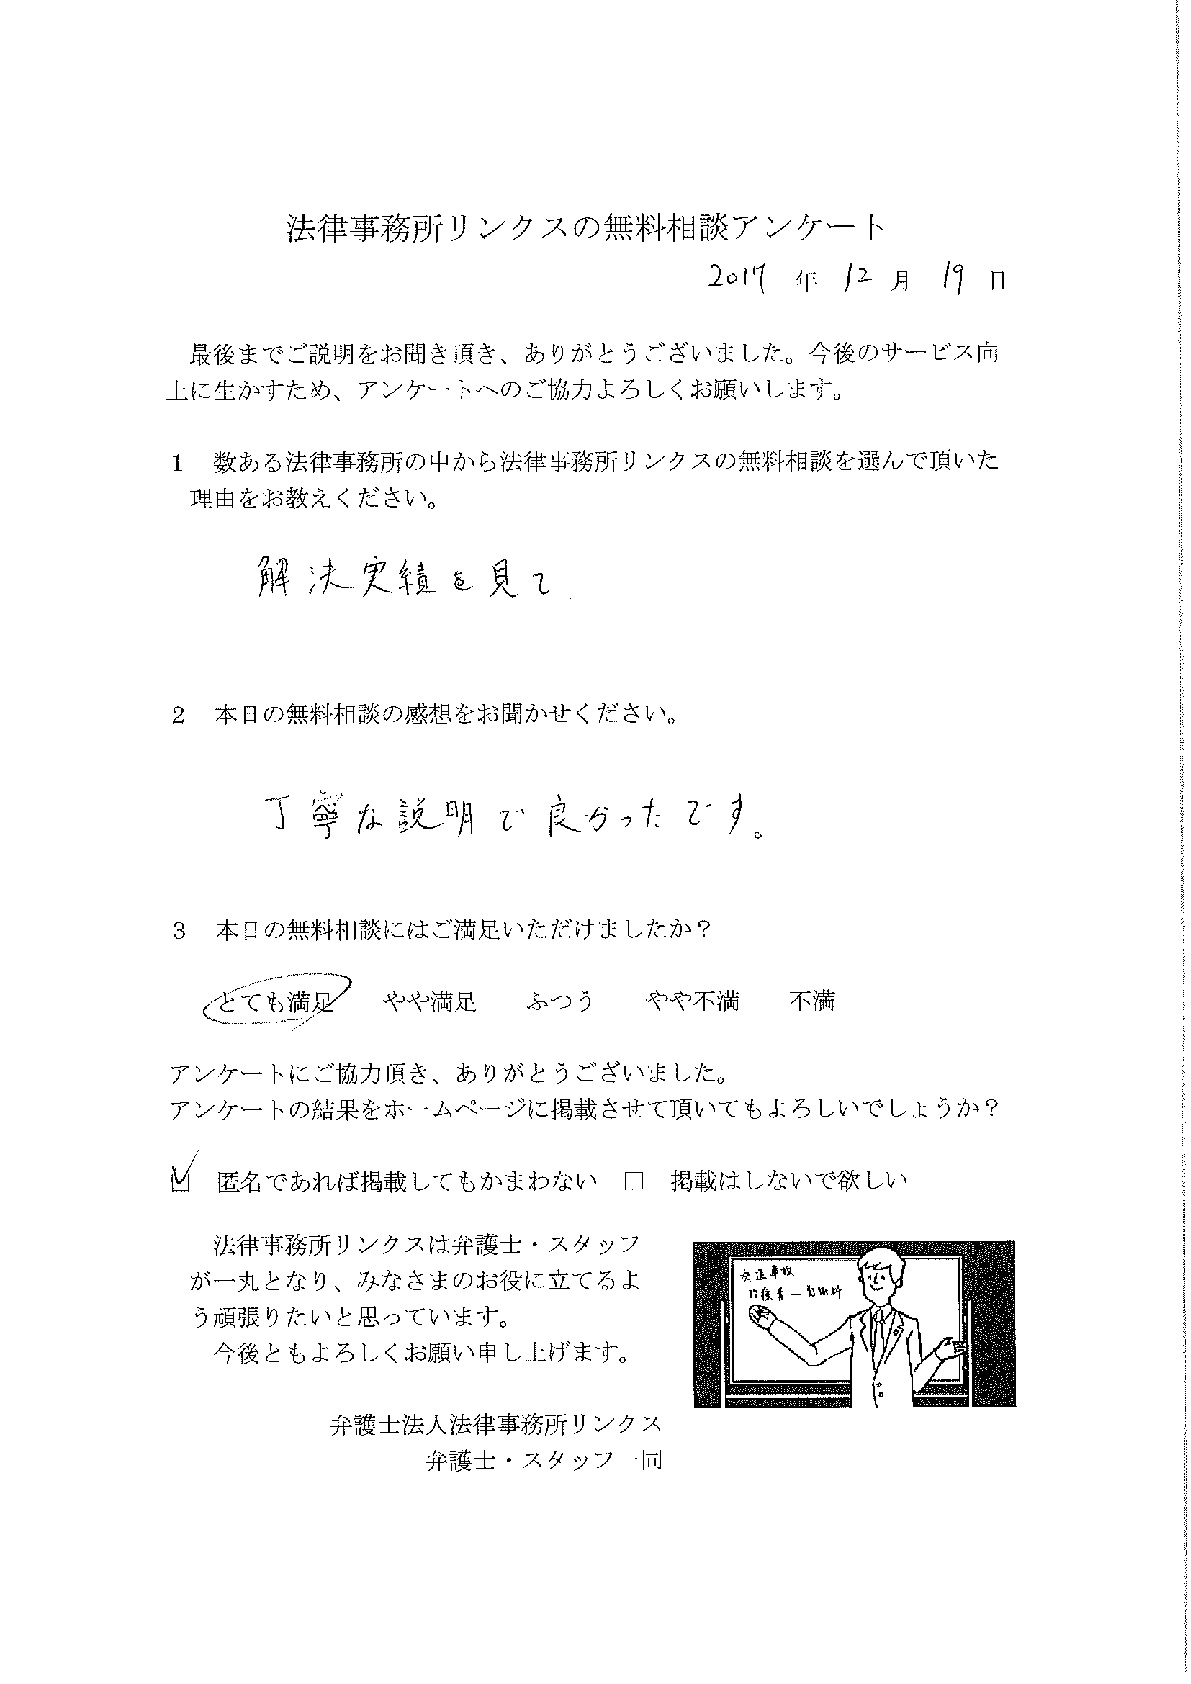 法律事務所リンクスの無料相談アンケート
2017 年 12 月 19 日
最後までご説明をお聞き頂き、ありがとうございました。今後のサービス向
上に生かすため、アンケートへのご協力よろしくお願いします。
1 数ある法律事務所の中から法律事務所リンクスの無料相談を選んで頂いた
理由をお教えください。
解決実績を見て
2 本日の無料相談の感想をお聞かせください。
丁寧な説明で良かったです。
3 本日の無料相談にはご満足いただけましたか？
とても満足 やや満足 ふつう やや不満 不満
アンケートにご協力頂き、ありがとうございました。
アンケートの結果をホームページに掲載させて頂いてもよろしいでしょうか？
☑ 匿名であれば掲載してもかまわない □ 掲載はしないで欲しい
法律事務所リンクスは弁護士・スタッフ
が一丸となり、みなさまのお役に立てるよ
う頑張りたいと思っています。
今後ともよろしくお願い申し上げます。
交通事故
弁護士法人法律事務所リンクス
弁護士・スタッフ一同